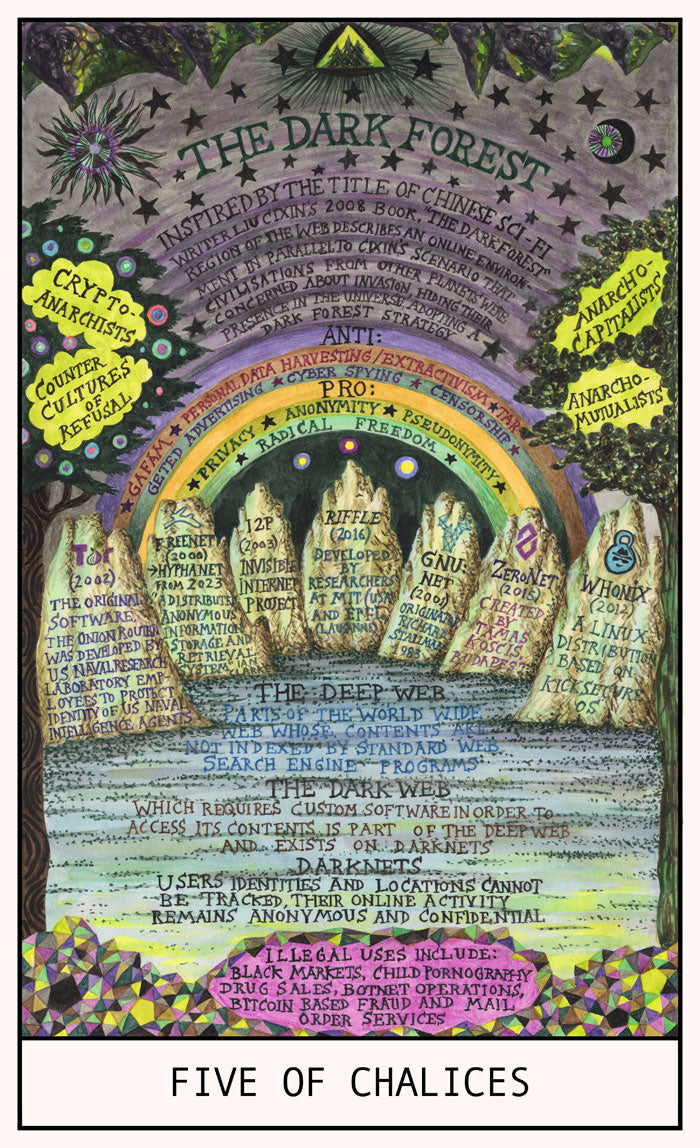 THE DARK FOREST
INSPIRED BY THE TITLE OF CHINESE SCI-FI
WRITER LIU CIXIN'S 2008 BOOK, "THE DARK FOREST"
REGION OF THE WEB DESCRIBES AN ONLINE ENVIRON-
MENT IN PARALLEL TO CIXIN'S SCENARIO THAT
CIVILISATIONS FROM OTHER PLANETS WERE
CONCERNED ABOUT INVASION, HIDING THEIR
PRESENCE IN THE UNIVERSE ADOPTING A
DARK FOREST STRATEGY
CRYPTO-
ANARCHISTS
COUNTER
CULTURES
OF
REFUSAL
ANARCHO-
CAPITALISTS
ANARCHO-
MUTUALISTS
ANTI:
GAFAM ★ PERSONAL DATA HARVESTING/EXTRACTIVISM ★ TAR
GETED ADVERTISING ★ CYBER SPYING ★ CENSORSHIP ★
PRO:
★ PRIVACY ★ ANONYMITY ★ PSEUDONYMITY ★
★ RADICAL FREEDOM ★
Tor
(2002)
THE ORIGINAL
SOFTWARE,
THE ONION ROUTER
WAS DEVELOPED BY
US NAVAL RESEARCH
LABORATORY EMP-
LOYEES TO PROTECT
IDENTITY OF US NAVAL
INTELLIGENCE AGENTS
FREENET
(2000)
→HYPHANET
FROM 2023
"A DISTRIBUTED
ANONYMOUS
INFORMATION
STORAGE AND
RETRIEVAL
SYSTEM", IAN
I2P
(2003)
INVISIBLE
INTERNET
PROJECT
RIFFLE
(2016)
DEVELOPED
BY
RESEARCHERS
AT MIT (USA)
AND EPFL
(LAUSANNE)
GNU:
NET
(2001)
ORIGINATOR
RICHARD
STALLMAN
1983
ZERONET
(2015)
CREATED
BY
TAMAS
KOSCIS
BUDAPEST
WHONIX
(2012)
A LINUX
DISTRIBUTION
BASED ON
KICKSECURE
OS
THE DEEP WEB
PARTS OF THE WORLD WIDE
WEB WHOSE CONTENTS ARE
NOT INDEXED BY STANDARD WEB
SEARCH ENGINE PROGRAMS
THE DARK WEB
WHICH REQUIRES CUSTOM SOFTWARE IN ORDER TO
ACCESS ITS CONTENTS IS PART OF THE DEEP WEB
AND EXISTS ON DARKNETS
DARKNETS
USERS IDENTITIES AND LOCATIONS CANNOT
BE TRACKED, THEIR ONLINE ACTIVITY
REMAINS ANONYMOUS AND CONFIDENTIAL
ILLEGAL USES INCLUDE:
BLACK MARKETS, CHILD PORNOGRAPHY
DRUG SALES, BOTNET OPERATIONS,
BITCOIN BASED FRAUD AND MAIL
ORDER SERVICES
FIVE OF CHALICES